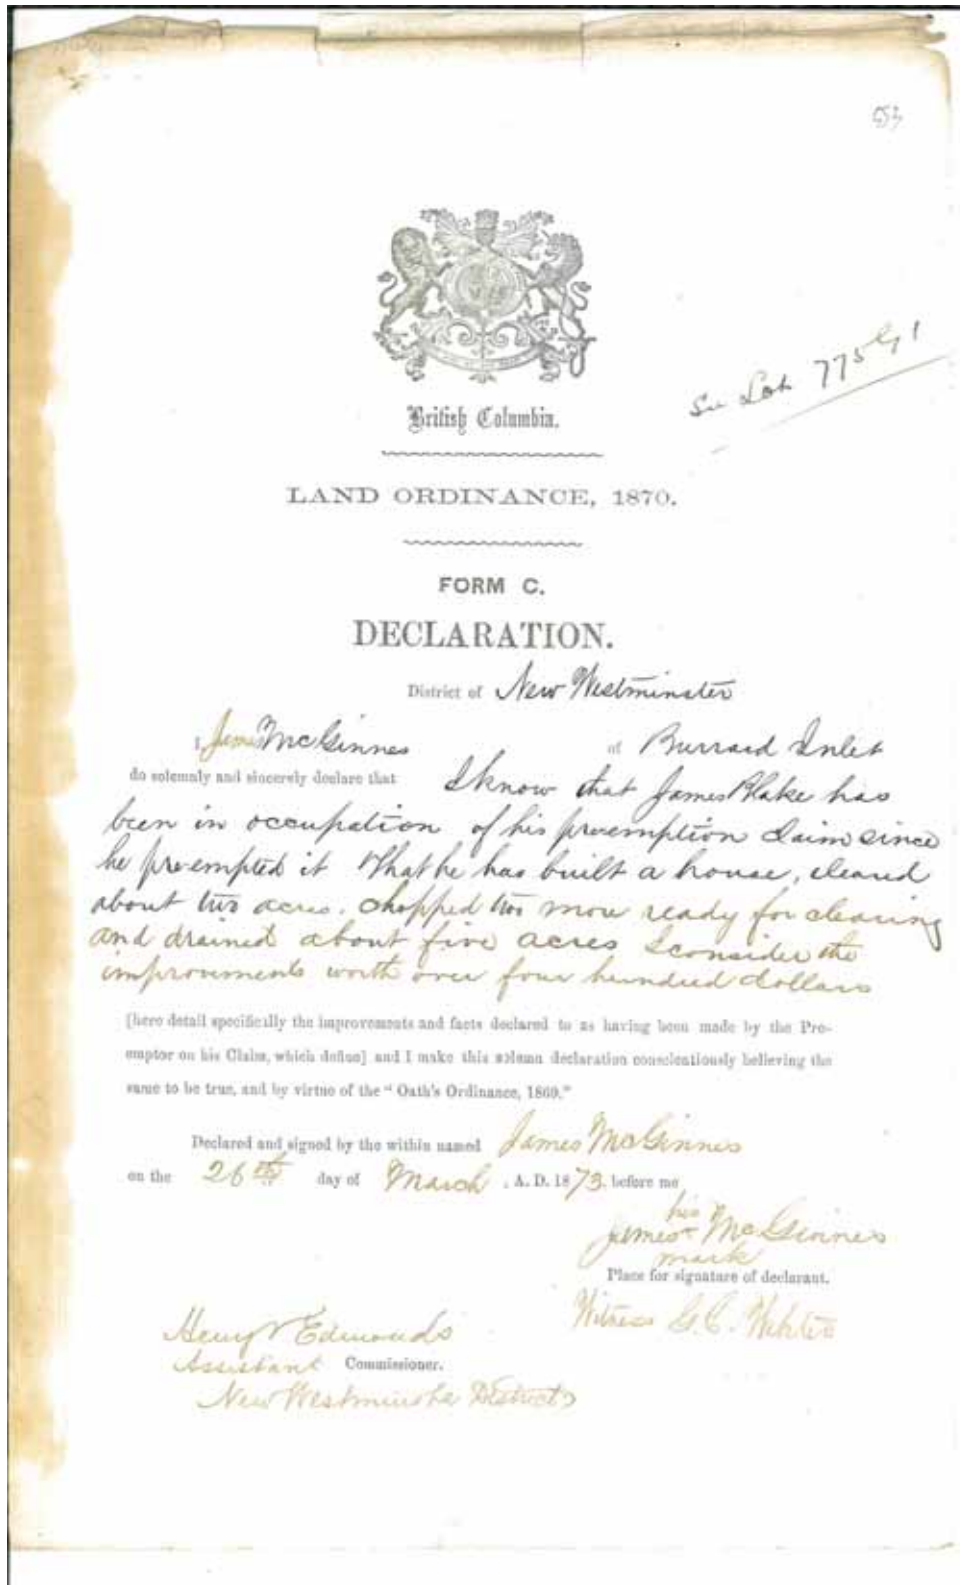 553
British Columbia.
See Lot 775 G 1
LAND ORDINANCE, 1870.
FORM C.
DECLARATION.
District of New Westminster
I James McGinnes of Burrard Inlet
do solemnly and sincerely declare that I know that James Blake has
been in occupation of his preemption Claim since
he pre-empted it That he has built a house, cleared
about two acres. chopped two more ready for clearing
and drained about five acres I consider the
improvements worth over four hundred dollars
[here detail specifically the improvements and facts declared to as having been made by the Pre-
emptor on his Claim, which define] and I make this solemn declaration conscientiously believing the
same to be true, and by virtue of the "Oath's Ordinance, 1869."
Declared and signed by the within named James McGinnes
on the 26th day of March, A. D. 1873. before me
his
James + McGinnes
mark
Place for signature of declarant.
Witness G. C. Webster
Henry V Edmonds
Assistant Commissioner.
New Westminster District